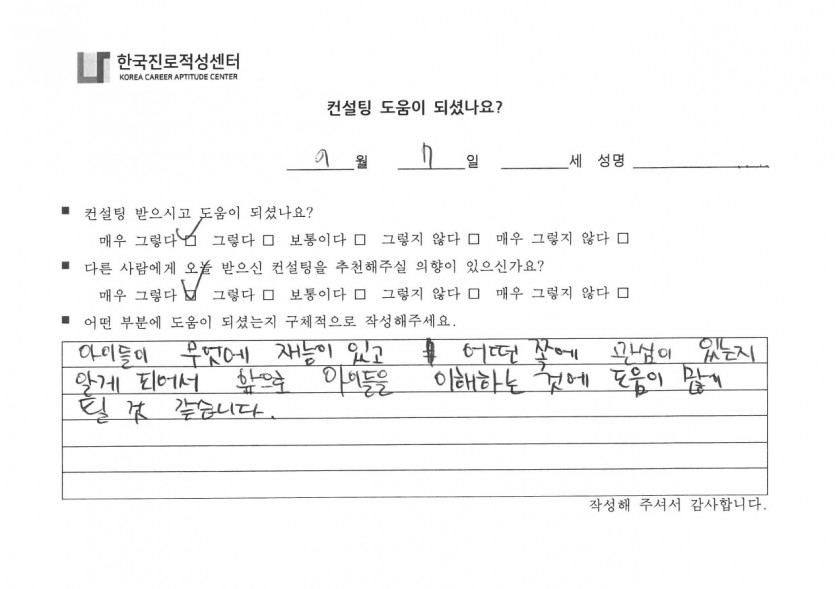 한국진로적성센터
KOREA CAREER APTITUDE CENTER
컨설팅 도움이 되셨나요?
월 일 세 성명
■ 컨설팅 받으시고 도움이 되셨나요?
매우 그렇다 ☑ 그렇다 □ 보통이다 □ 그렇지 않다 □ 매우 그렇지 않다 □
■ 다른 사람에게 오늘 받으신 컨설팅을 추천해주실 의향이 있으신가요?
매우 그렇다 ☑ 그렇다 □ 보통이다 □ 그렇지 않다 □ 매우 그렇지 않다 □
■ 어떤 부분에 도움이 되셨는지 구체적으로 작성해주세요.
아이들이 무엇에 재능이 있고 어떠한 쪽에 관심이 있는지
알게 되어서 앞으로 아이들을 이해하는 것에 도움이 많게
될 것 같습니다.
작성해 주셔서 감사합니다.